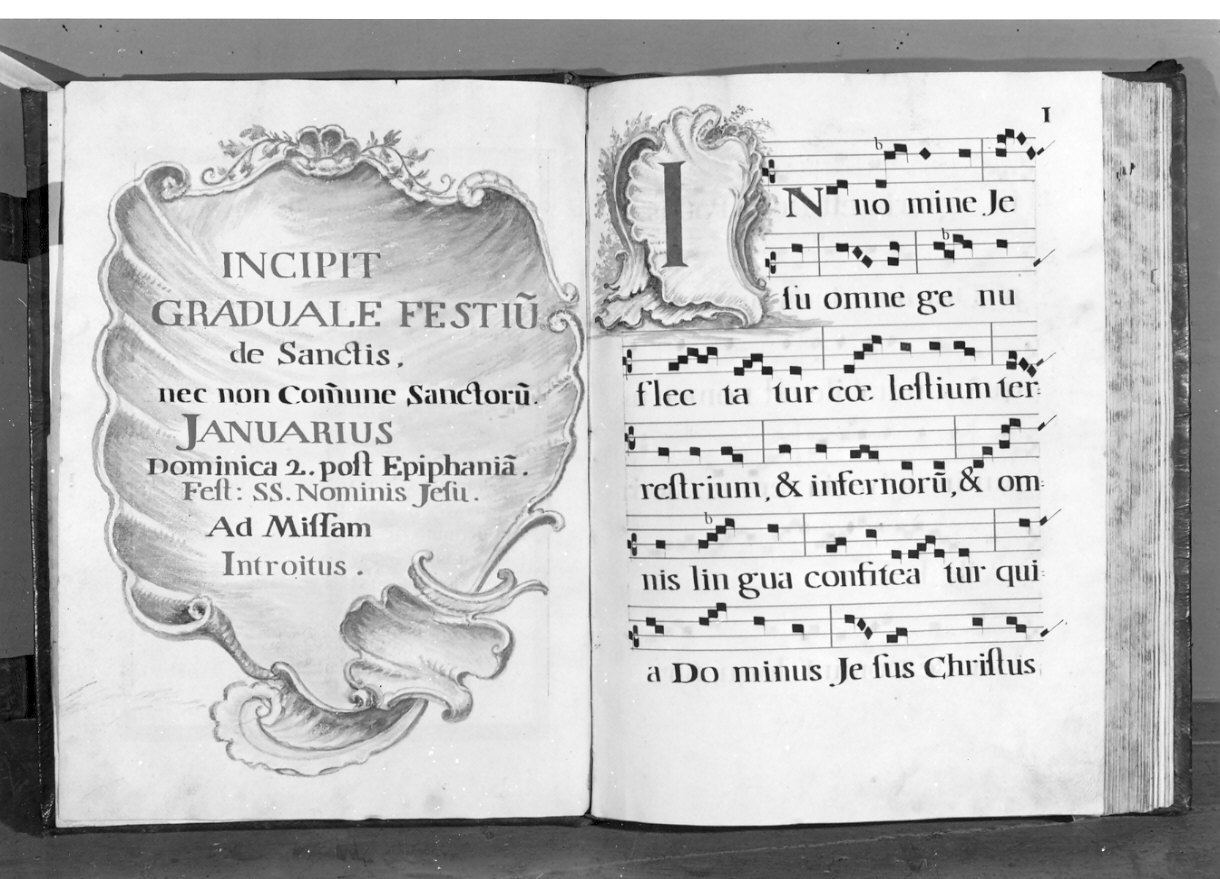 INCIPIT
GRADUALE FESTIŨ
de Sanctis,
nec non Com̃une Sanctorũ.
JANUARIUS
Dominica 2. post Epiphaniã.
Feſt: SS. Nominis Jeſu.
Ad Miſſam
Introitus.
I
I
N no mine Je
ſu omne ge nu
flec ta tur cœ leſtium ter=
reſtrium, & infernorũ, & om=
nis lin gua confitea tur qui=
a Do minus Je ſus Chriſtus